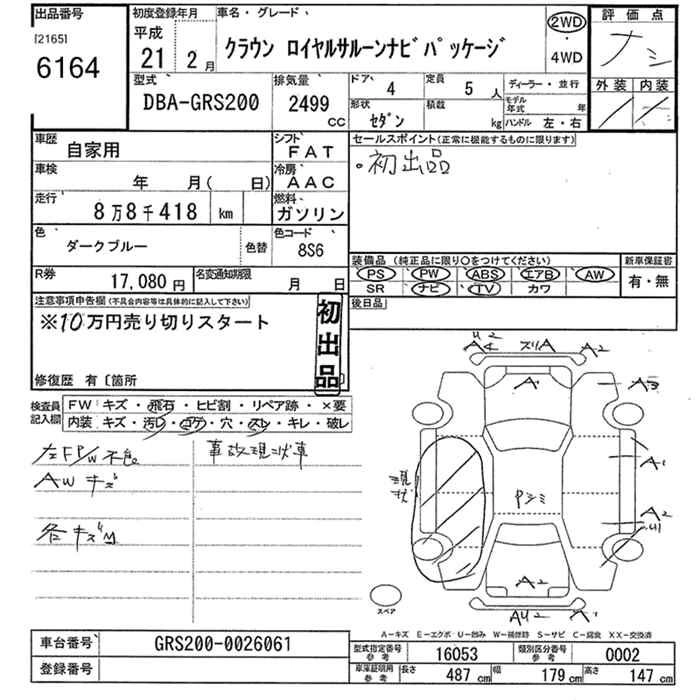 出品番号
[2165]
6164
初度登録年月
平成
21年 2月
車名・グレード
クラウン ロイヤルサルーンナビパッケージ
2WD
・
4WD
評価点
ナシ
外装 内装
型式
DBA-GRS200
排気量
2499 CC
ドア 4
定員 5 人
ディーラー・並行
形状 セダン
積載 kg
モデル年式 年
ハンドル 左・右
車歴
自家用
シフト
FAT
車検
年 月( 日)
冷房
AAC
走行
8万8千418 km
燃料
ガソリン
色
ダークブルー
色替
色コード
8S6
R券
17,080円
名変通知期限
月 日
セールスポイント(正常に機能するものに限ります)
・初出品
装備品(純正品に限り○をつけてください)
PS PW ABS エアB AW
SR ナビ TV カワ
新車保証書
有・無
後日品
注意事項申告欄(不具合内容等は具体的に記入して下さい)
※10万円売り切りスタート
初出品
修復歴 有〔箇所
検査員記入欄
FW キズ・飛石・ヒビ割・リペア跡・×要
内装 キズ・汚レ・コゲ・穴・スレ・キレ・破レ
左FP/W不良
事故現状車
AWキズ
各キズM
U2
A4 ズリA A2
A
A3
A1
現状
Pシミ
A2
A2
AU2 A1
スペア
A-キズ E-エクボ U-凹み W-補修跡 S-サビ C-腐食 XX-交換済
車台番号
GRS200-0026061
登録番号
型式指定番号
参考
16053
類別区分番号
参考
0002
車庫証明用
参考
長さ 487 cm
幅 179 cm
高さ 147 cm